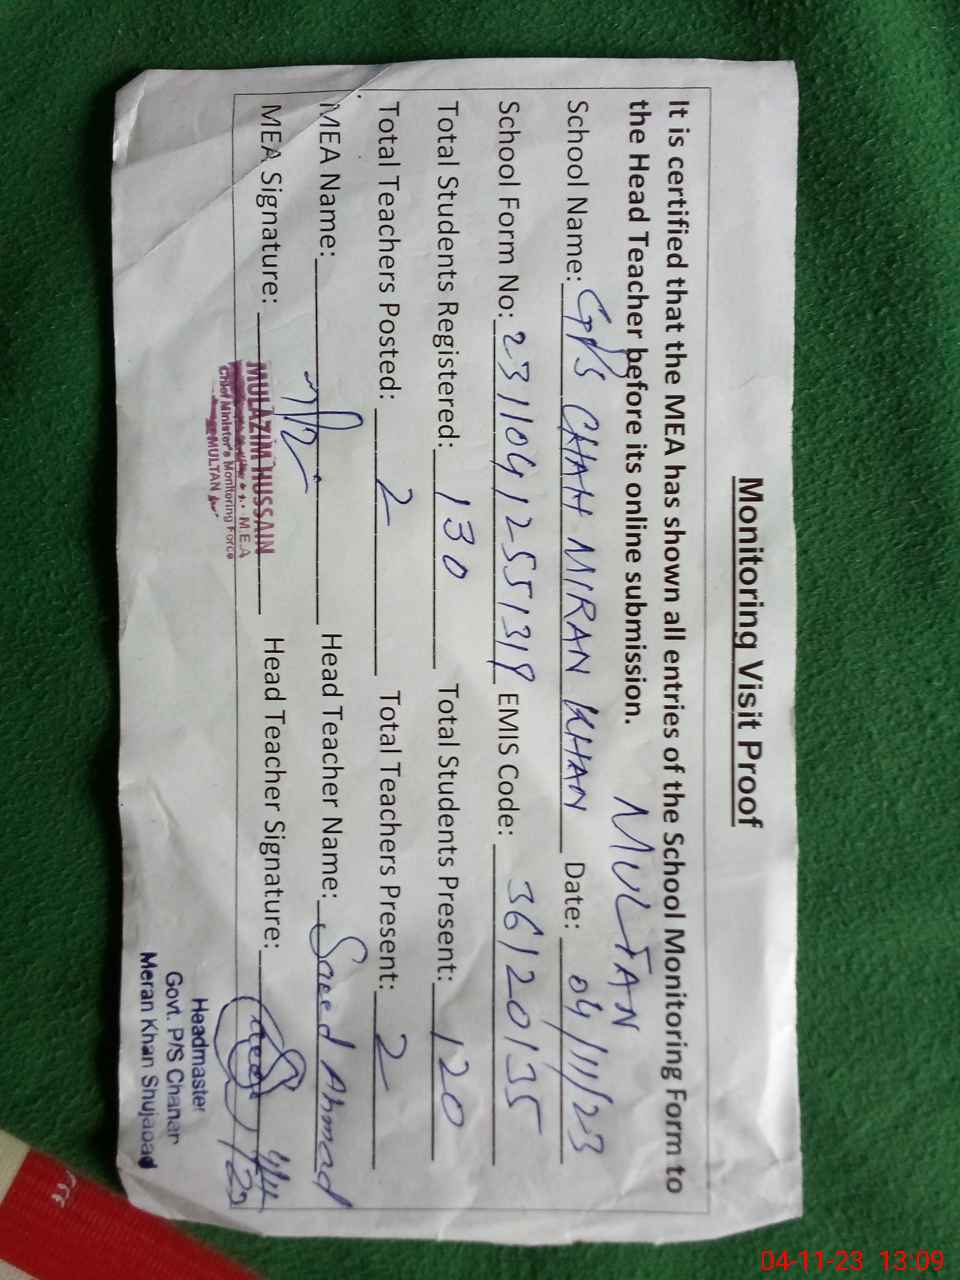 Monitoring Visit Proof
It is certified that the MEA has shown all entries of the School Monitoring Form to
the Head Teacher before its online submission.
MULTAN
School Name: GPS CHAH MIRAN KHAN Date: 04/11/23
School Form No: EMIS Code: 36120135
Total Students Registered: 130 Total Students Present: 120
Total Teachers Posted: 2 Total Teachers Present: 2
MEA Name: Head Teacher Name: Saeed Ahmad
MEA Signature: Head Teacher Signature:
MULAZIM HUSSAIN
M.E.A
Chief Minister's Monitoring Force
MULTAN
Headmaster
Govt. P/S Chahan
Meran Khan Shujabad
04-11-23 13:09